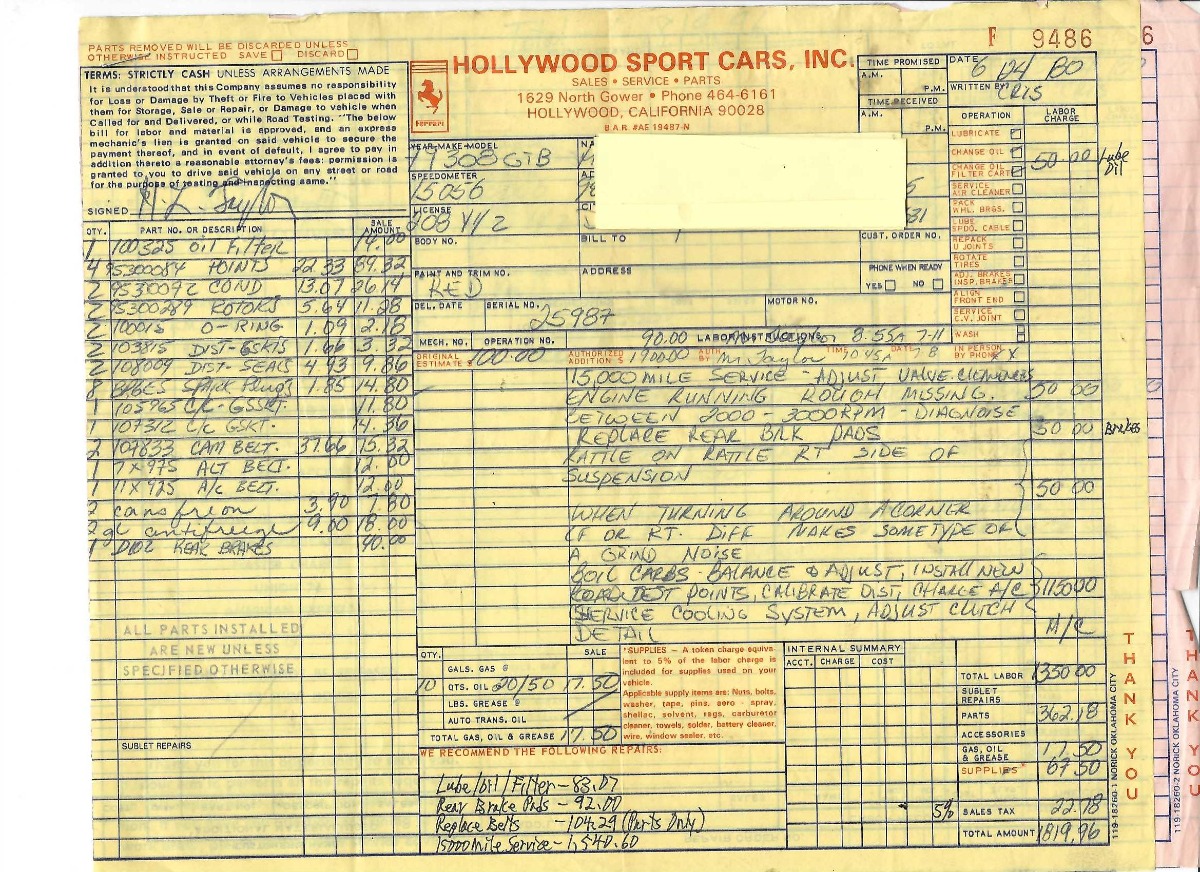 PARTS REMOVED WILL BE DISCARDED UNLESS
OTHERWISE INSTRUCTED SAVE DISCARD
TERMS: STRICTLY CASH UNLESS ARRANGEMENTS MADE
It is understood that this Company assumes no responsibility
for Loss or Damage by Theft or Fire to Vehicles placed with
them for Storage, Sale or Repair, or Damage to vehicle when
Called for and Delivered, or while Road Testing. "The below
bill for labor and material is approved, and an express
mechanic's lien is granted on said vehicle to secure the
payment thereof, and in event of default, I agree to pay in
addition thereto a reasonable attorney's fees: permission is
granted to you to drive said vehicle on any street or road
for the purpose of testing and inspecting same."
SIGNED H. L. Taylor
Ferrari
HOLLYWOOD SPORT CARS, INC.
SALES • SERVICE • PARTS
1629 North Gower • Phone 464-6161
HOLLYWOOD, CALIFORNIA 90028
B.A.R. #AE 19487-N
F 9486
6
TIME PROMISED
A.M.
P.M.
TIME RECEIVED
A.M.
P.M.
DATE 6 24 80
WRITTEN BY CRIS
OPERATION LABOR CHARGE
LUBRICATE
CHANGE OIL 50.00 Lube Oil
CHANGE OIL FILTER CART
SERVICE AIR CLEANER
PACK WHL. BRGS.
LUBE SPDO. CABLE
REPACK U JOINTS
ROTATE TIRES
ADJ. BRAKES INSP. BRAKES
ALIGN FRONT END
SERVICE C.V. JOINT
WASH
YEAR-MAKE-MODEL
77 308 GTB
SPEEDOMETER
15056
LICENSE
208 YIZ
BODY NO.
BILL TO
CUST. ORDER NO.
PAINT AND TRIM NO.
RED
ADDRESS
PHONE WHEN READY
YES NO
DEL. DATE
SERIAL NO.
25987
MOTOR NO.
MECH. NO. OPERATION NO. 90.00 LABOR INSTRUCTIONS 8:55A 7-11
ORIGINAL ESTIMATE $ 100.00 AUTHORIZED ADDITION $ 1900.00 AUTH BY Mr. Taylor TIME 1045A DATE 7 8 IN PERSON BY PHONE X
QTY. PART NO. OR DESCRIPTION SALE AMOUNT
1 100325 OIL FILTER 14.00
4 95300084 POINTS 22.33 89.32
2 9530092 COND 13.07 26.14
2 95300289 ROTORS 5.64 11.28
2 100015 O-RING 1.09 2.18
2 103815 DIST-GSKTS 1.66 3.32
2 108009 DIST-SEALS 4.93 9.86
8 BP6ES SPARK Plugs 1.85 14.80
1 105965 C/C-GSSKT. 11.80
1 107312 C/C GSKT. 14.36
2 107833 CAM BELT. 37.66 75.32
1 7X975 ALT BELT. 12.00
1 11X925 A/C BELT. 12.00
2 cans freon 3.90 7.80
2 gl antifreeze 9.00 18.00
1 D102 REAR BRAKES 40.00
ALL PARTS INSTALLED
ARE NEW UNLESS
SPECIFIED OTHERWISE
SUBLET REPAIRS
15,000 MILE SERVICE - ADJUST VALVE CLEARNCES
ENGINE RUNNING ROUGH MISSING. 50 00
BETWEEN 2000 - 3000 RPM - DIAGNOISE
REPLACE REAR BRK PADS 50 00 Brakes
RATTLE ON RATTLE RT SIDE OF
SUSPENSION
50 00
WHEN TURNING AROUND A CORNER
LF OR RT. DIFF MAKES SOME TYPE OF
A GRIND NOISE
BOIL CARBS - BALANCE & ADJUST, INSTALL NEW
POINTS, CALIBRATE DIST, CHARGE A/C 1150.00
SERVICE COOLING SYSTEM, ADJUST CLUTCH
DETAIL N/C
QTY. SALE
GALS. GAS @
10 QTS. OIL 20/50 17.50
LBS. GREASE @
AUTO TRANS. OIL
TOTAL GAS, OIL & GREASE 17.50
*SUPPLIES - A token charge equiva-
lent to 5% of the labor charge is
included for supplies used on your
vehicle.
Applicable supply items are: Nuts, bolts,
washer, tape, pins, aero - spray,
shellac, solvent, rags, carburetor
cleaner, towels, solder, battery cleaner,
wire, window sealer, etc.
INTERNAL SUMMARY
ACCT. CHARGE COST
WE RECOMMEND THE FOLLOWING REPAIRS:
Lube/oil/Filter - 83.07
Rear Brake Pads - 92.00
Replace Belts - 104.29 (Parts Only)
15000 Mile Service - 1,540.60
TOTAL LABOR 1350.00
SUBLET REPAIRS
PARTS 362.18
ACCESSORIES
GAS, OIL & GREASE 17.50
SUPPLIES* 67.50
5% SALES TAX 22.78
TOTAL AMOUNT 1819.96
THANK YOU
119-18260-1 NORICK OKLAHOMA CITY
THANK YOU
119-18260-2 NORICK OKLAHOMA CITY